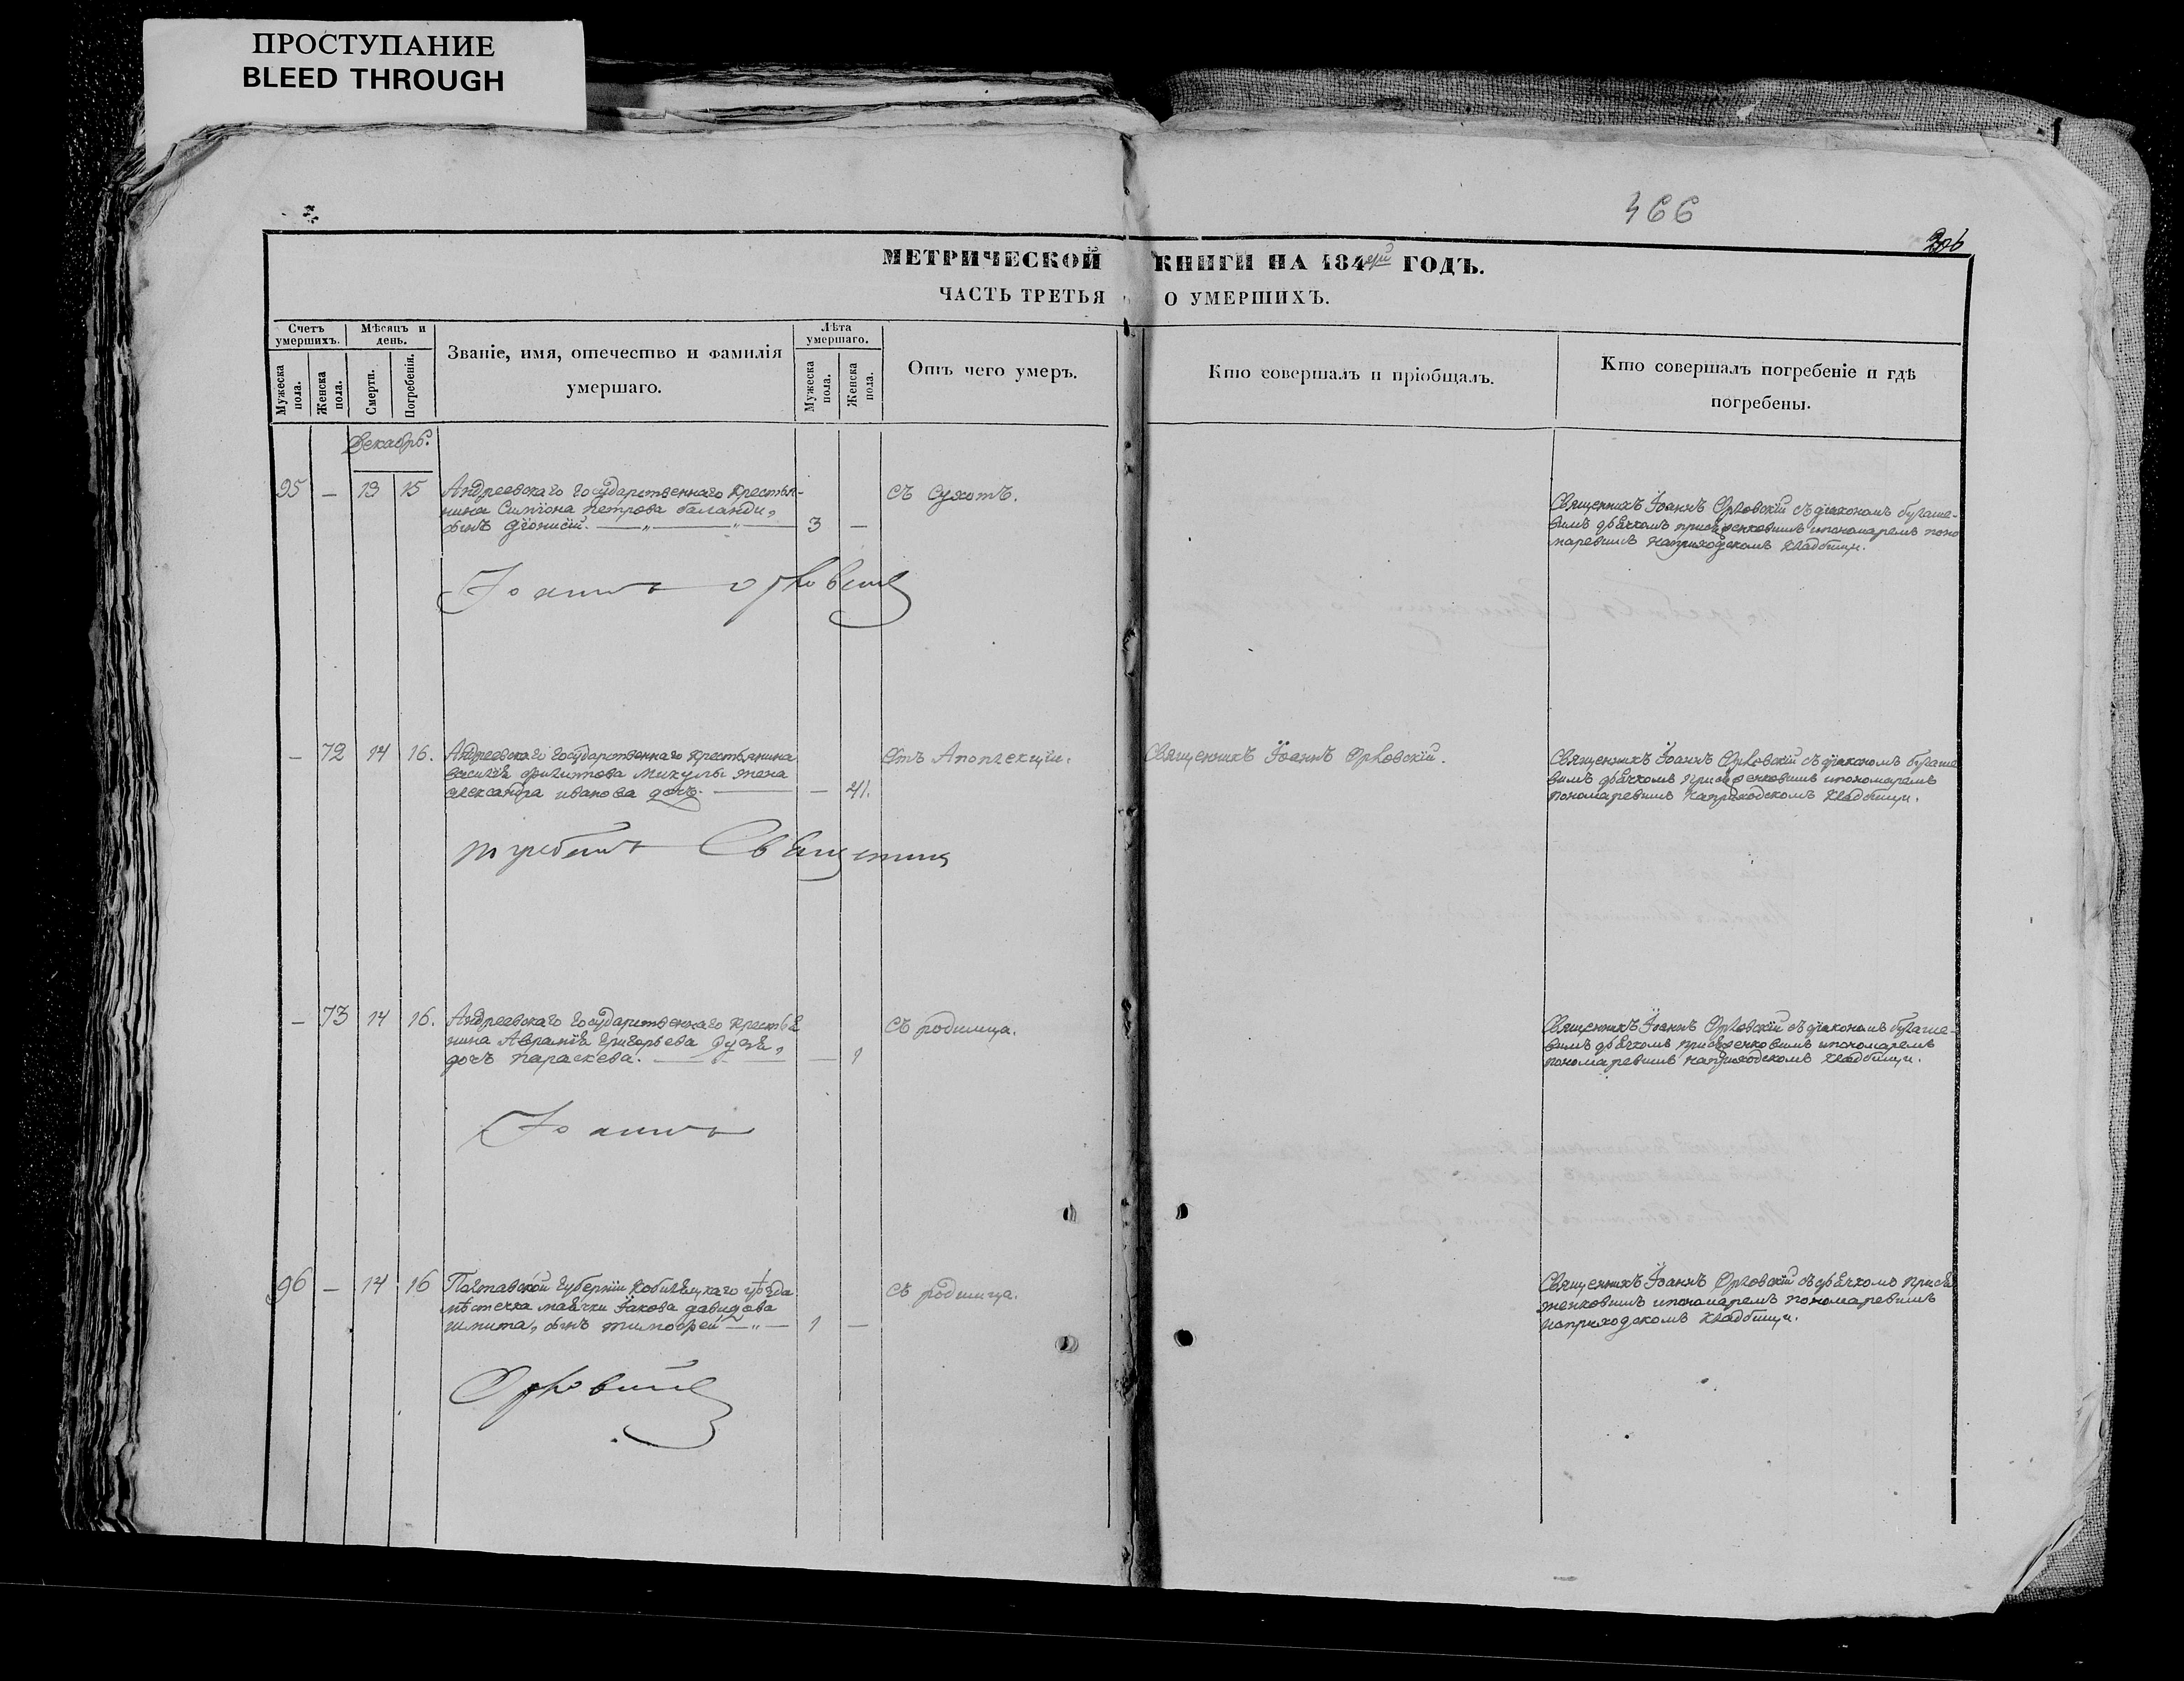 ПРОСТУПАНИЕ
BLEED THROUGH
466
МЕТРИЧЕСКОЙ КНИГИ НА 184 ГОДЪ.
ЧАСТЬ ТРЕТЬЯ О УМЕРШИХЪ.
Счетъ умершихъ.
Мѣсяцъ и день.
Званіе, имя, отечество и фамилія умершаго.
Лѣта умершаго.
Отъ чего умеръ.
Кто совершалъ и пріобщалъ.
Кто совершалъ погребеніе и гдѣ погребены.
Мужеска пола.
Женска пола.
Смерти.
Погребенія.
Мужеска пола.
Женска пола.
Декабрь.
95 — 13 15 Андреевскаго государственнаго крестья-
нина Симіона Петрова баланди,
сынъ Діонисій. — „ — „ — 3 —
съ сухотъ.
Священникъ Іоаннъ Орловскій съ діакономъ бугаше-
вымъ дьячкомъ и пономаремъ поно
маревымъ наприходскомъ кладбищи.
Іоаннъ Орловскій
— 72 14 16. Андреевскаго государственнаго крестьянина
василія филипова микулы жена
александра иванова дочь. — — 41.
Отъ Апоплекціи.
Священникъ Іоаннъ Орловскій.
Священникъ Іоаннъ Орловскій съ діакономъ бугаше
вымъ дьячкомъ ипономаремъ
пономаревымъ наприходскомъ кладбищи.
погребалъ Священник
— 73 14 16. Андреевскаго государственнаго крестья
нина Аврамія григорьева
дочь параскева. — — 1
съ родимца.
Священникъ Іоаннъ Орловскій съ діакономъ бугаше-
вымъ дьячкомъ ипономаремъ
пономаревымъ наприходскомъ кладбищи.
Іоаннъ
96 — 14 16 Полтавской губерніи кобиляцкаго уѣзда
мѣстечка маячки Іакова давидова
сынъ тимофей — „ — 1 —
съ родимца.
Священникъ Іоаннъ Орловскій съ дьячкомъ
ипономаремъ пономаревымъ
наприходскомъ кладбищи.
Орловскій